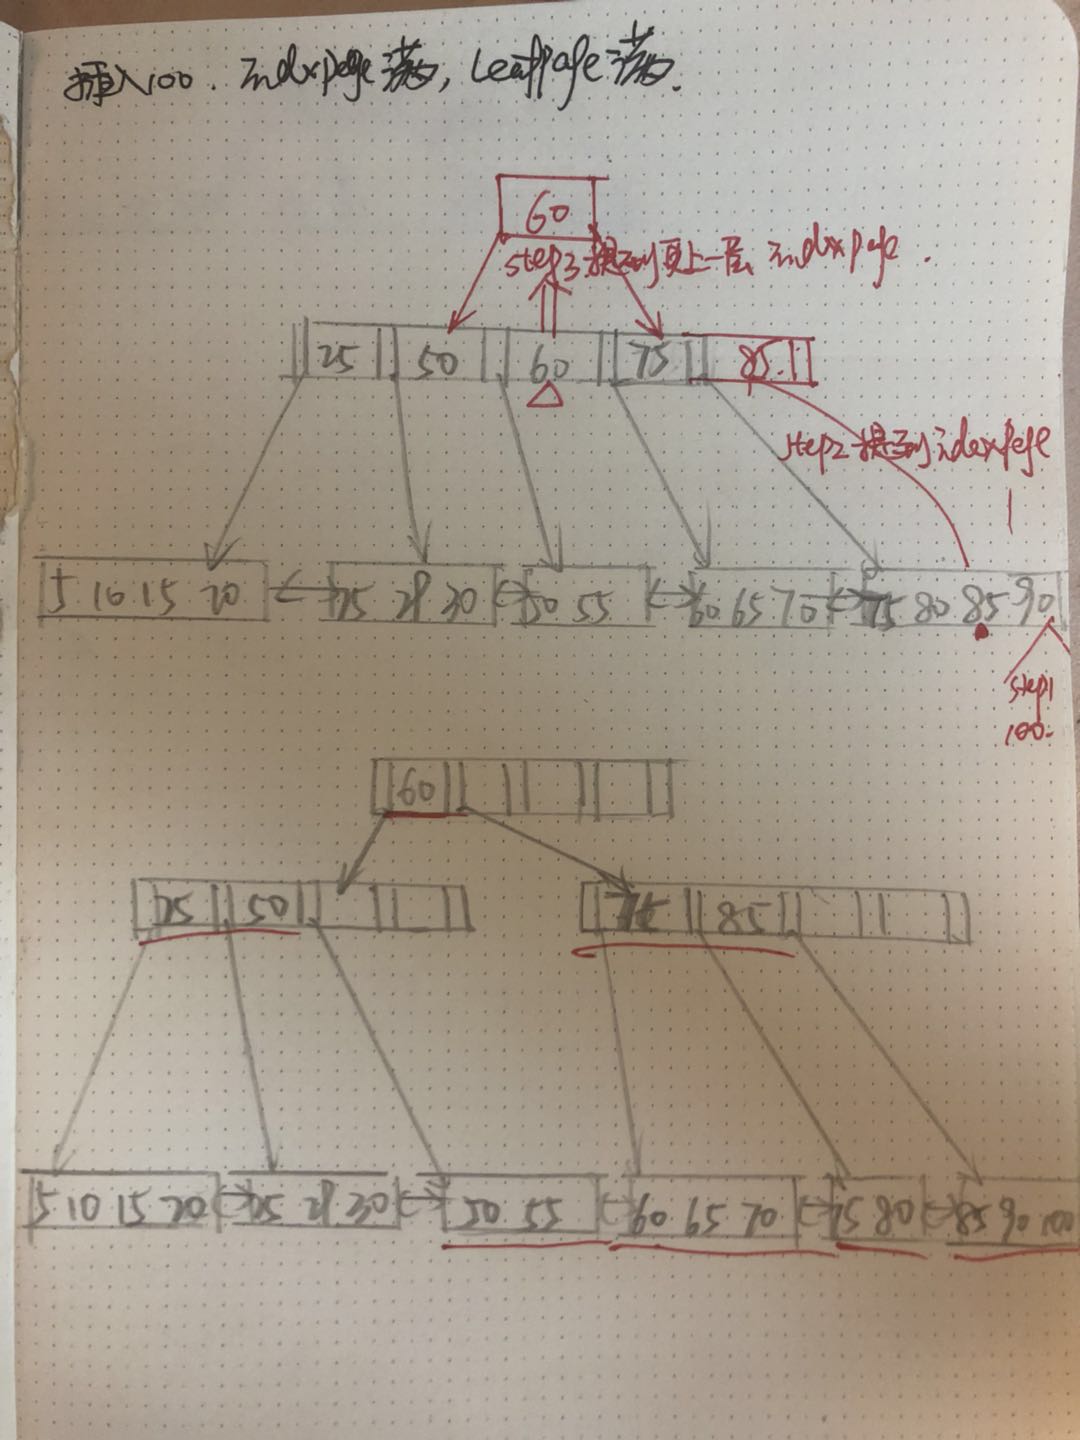 插入100. Indxpage满, Leafpage满.
60
step3 提到更上一层 Indxpage.
25 50 60 75 85
step2 提到indexpage
5 10 15 20 25 28 30 50 55 60 65 70 75 80 85 90
step1
100.
60
25 50 75 85
5 10 15 20 25 28 30 50 55 60 65 70 75 80 85 90 100